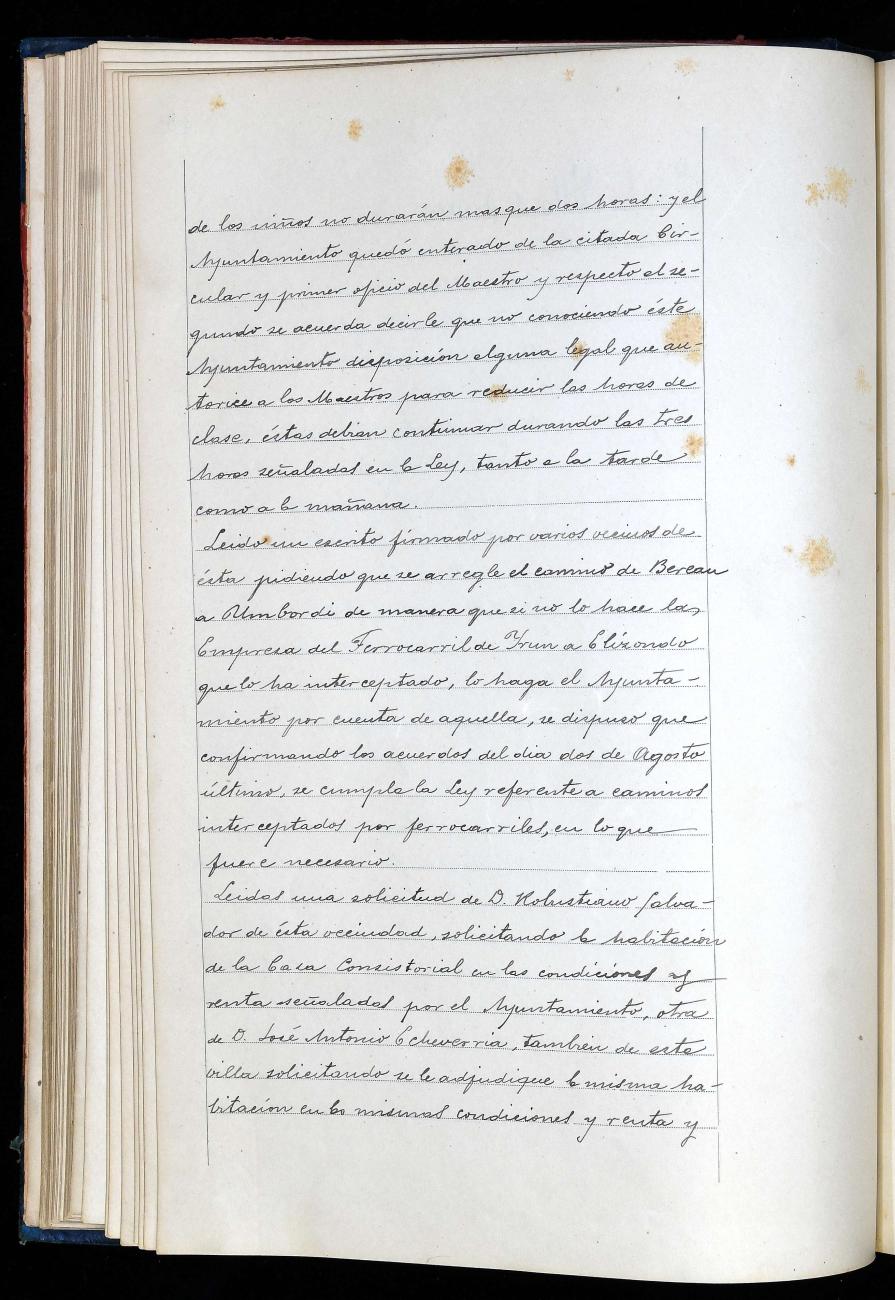 de los niños no durarán mas que dos horas: y el
Ayuntamiento quedó enterado de la citada Cir-
cular y primer oficio del Maestro y respecto al se-
gundo se acuerda decirle que no conociendo éste
Ayuntamiento disposición alguna legal que au-
torice a los Maestros para reducir las horas de
clase, éstas debian continuar durando las tres
horas señaladas en la Ley, tanto a la tarde
como a la mañana.
Leido un escrito firmado por varios vecinos de
ésta pidiendo que se arregle el camino de Bereau
a Umbordi de manera que si no lo hace la
Empresa del Ferrocarril de Yrun a Elizondo
que lo ha interceptado, lo haga el Ayunta-
miento por cuenta de aquella, se dispuso que
confirmando los acuerdos del dia dos de Agosto
último, se cumpla la Ley referente a caminos
interceptados por ferrocarriles, en lo que
fuere necesario.
Leidas una solicitud de D. Robustiano Salva-
dor de ésta vecindad, solicitando la habitación
de la Casa Consistorial en las condiciones y
renta señaladas por el Ayuntamiento, otra
de D. José Antonio Echeverria, también de esta
villa solicitando se le adjudique la misma ha-
bitación en las mismas condiciones y renta y